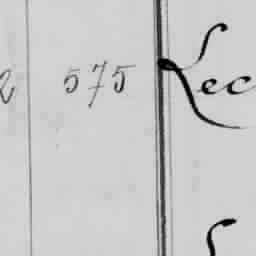 2 575 Lec